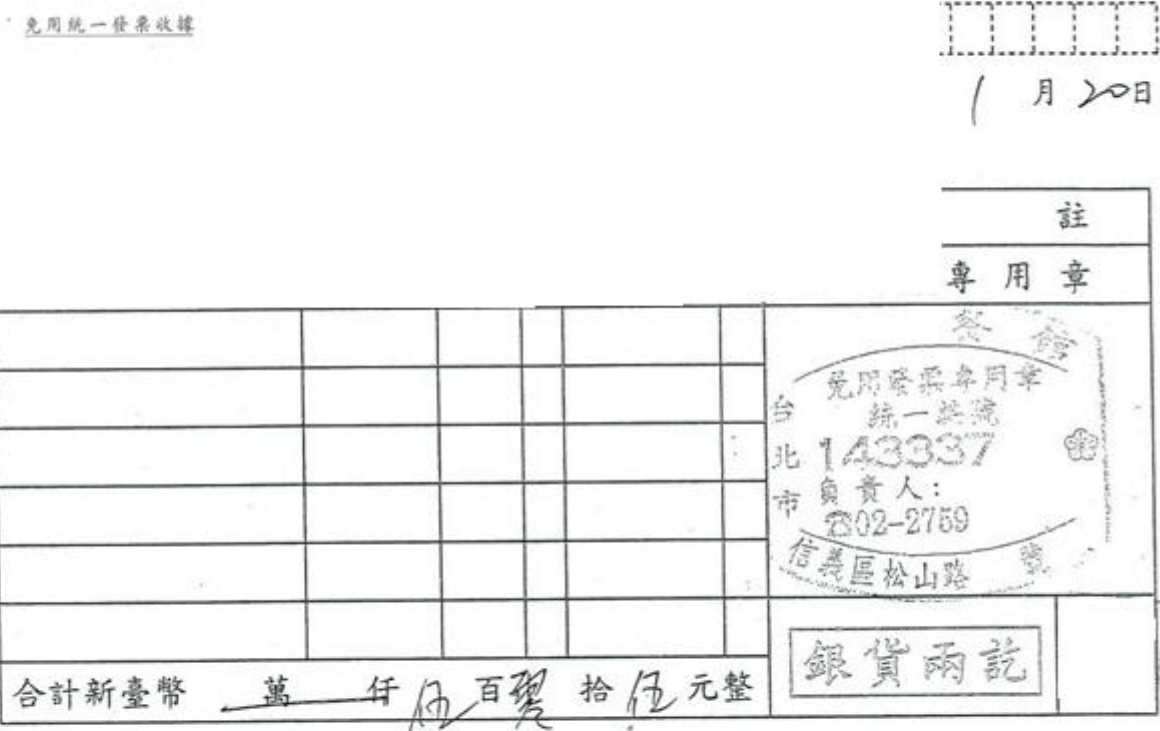 免用統一發票收據
1月20日
註
專用章
餐館
免用發票專用章
統一編號
台北市
143337
負責人：
☎02-2759
信義區松山路 號
銀貨兩訖
合計新臺幣 萬 仟 伍 百 零 拾 伍 元整